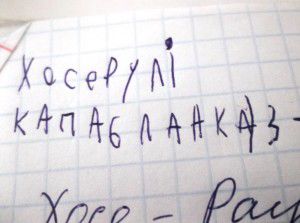 Хосерулі
КАПАБЛАНКА)З-
Хосе - Рау